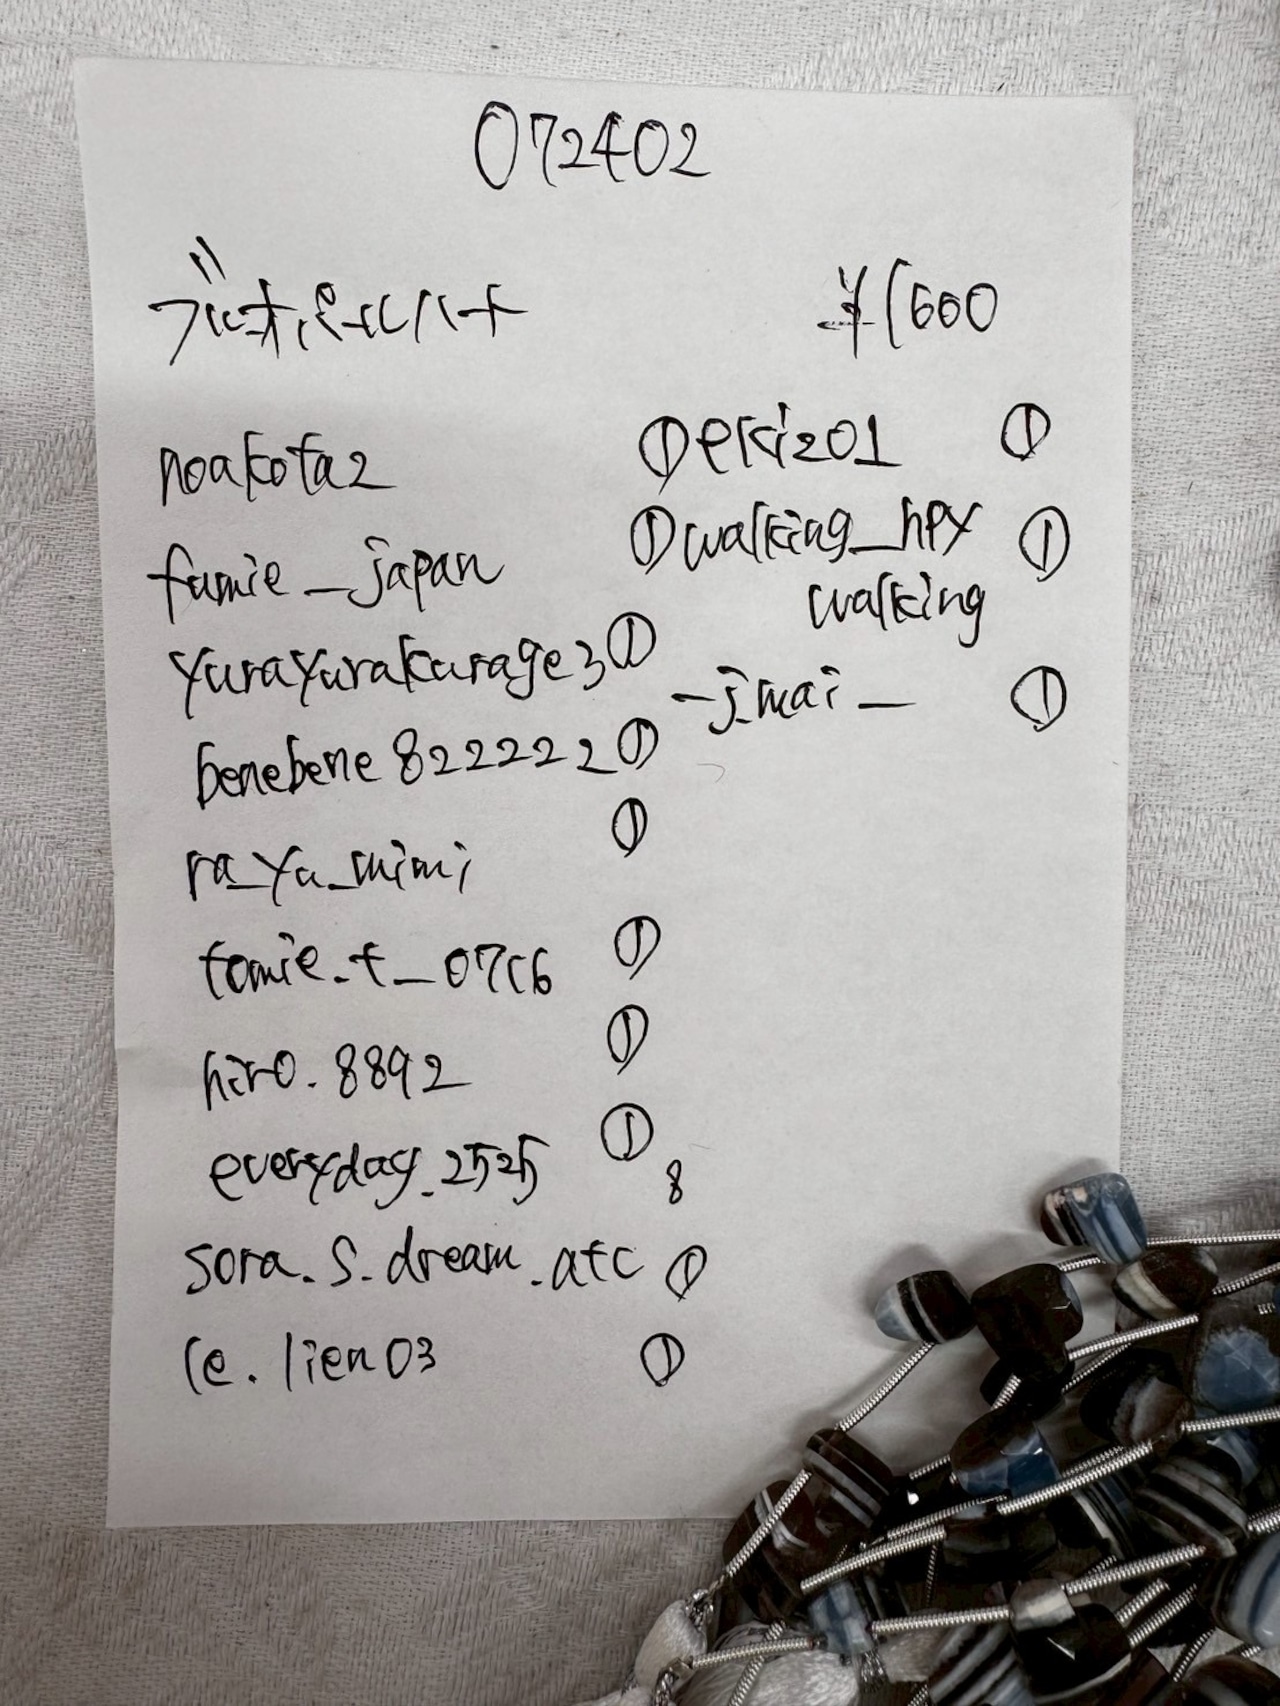 072402
ブルーオパールハート ¥1600
noakota2 ①
fumie_japan ①
yurayurakurage3 ①
benebene822222 ①
ra_yu_mimi ①
tomie.t_0716 ①
hiro.8892 ①
everyday.2525 ①
8
sora.s.dream.atc ①
le.lien03 ①
eki201 ①
walking_hpy ①
walking
_j.mai_ ①